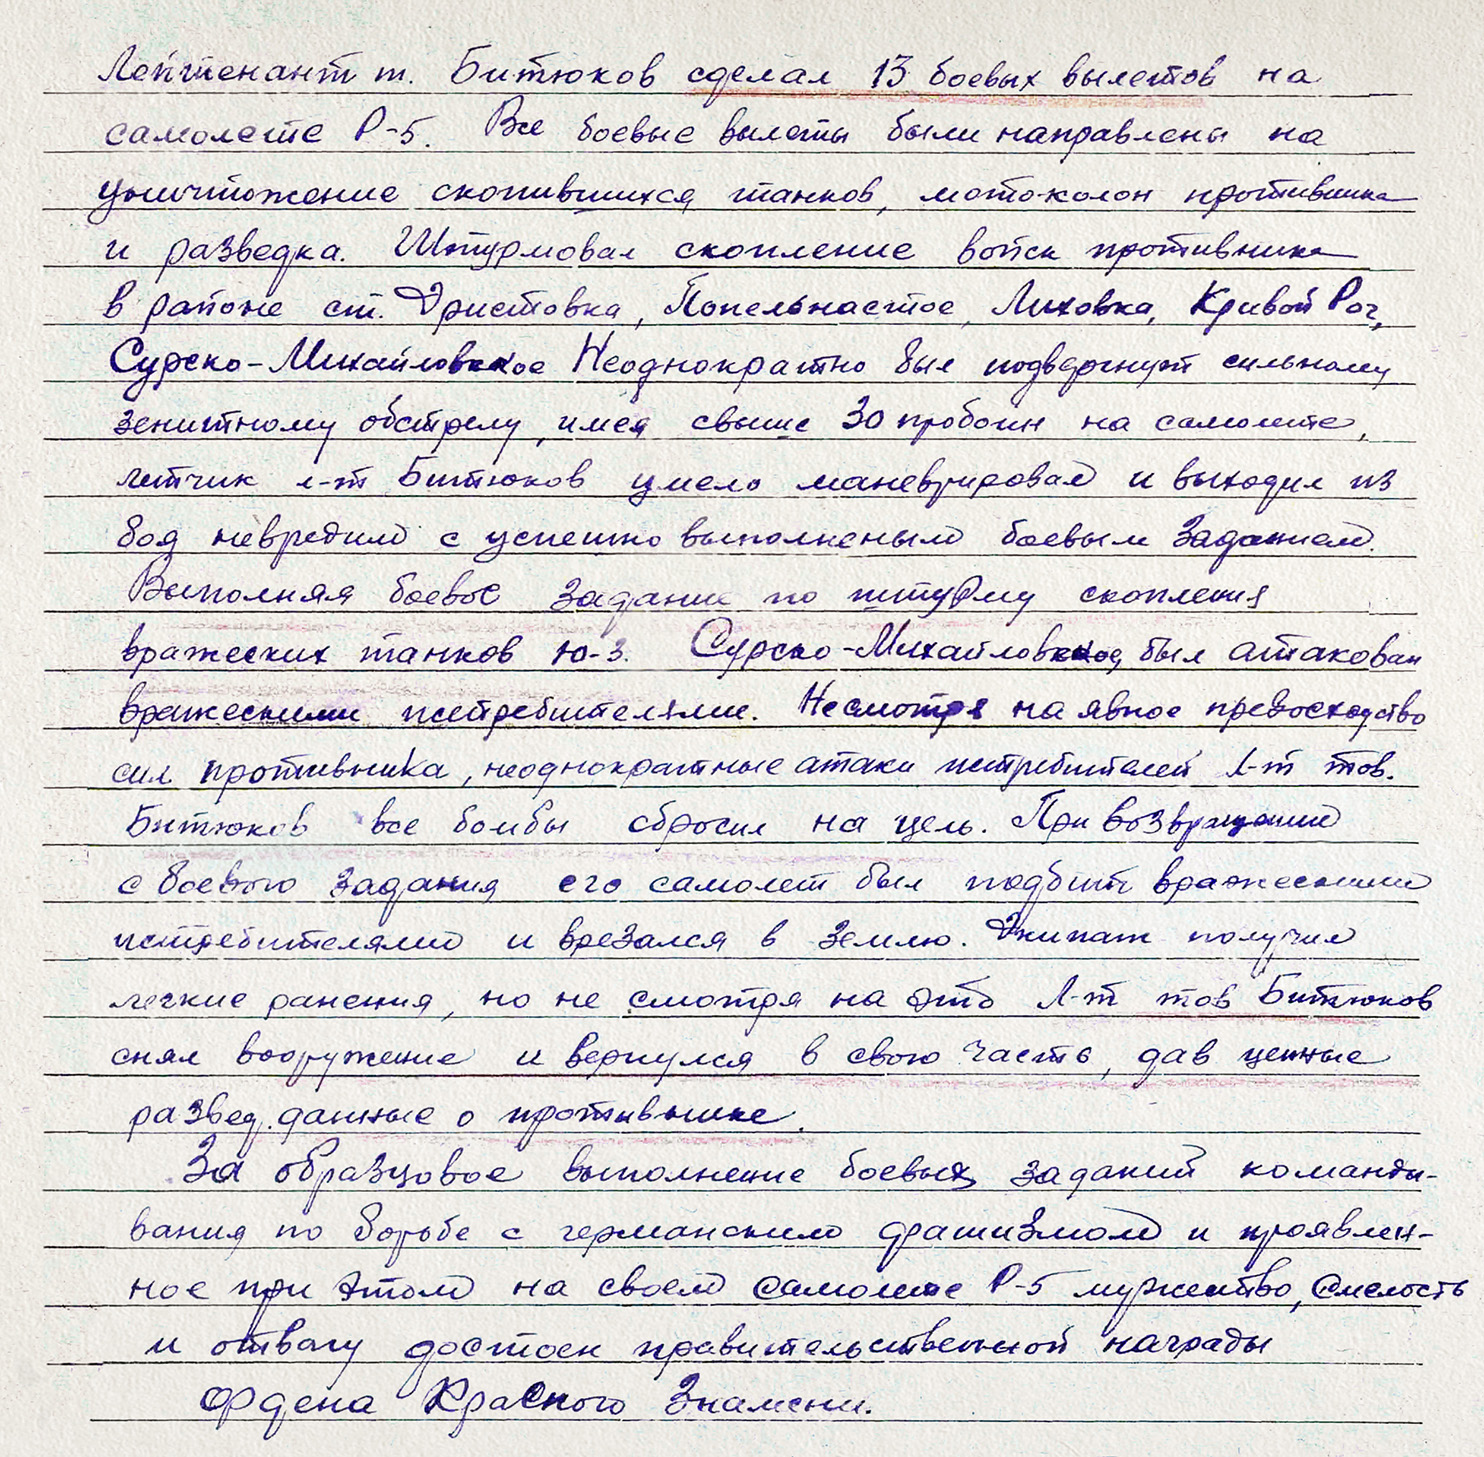 Лейтенант т. Битюков сделал 13 боевых вылетов на
самолете Р-5. Все боевые вылеты были направлены на
уничтожение скопившихся танков, мото-колон противника
и разведка. Штурмовал скопление войск противника
в районе ст. Эристовка, Попельнастое, Лиховка, Кривой Рог,
Сурско-Михайловское Неоднократно был подвергнут сильному
зенитному обстрелу, имея свыше 30 пробоин на самолете,
летчик л-т Битюков умело маневрировал и выходил из
боя невредим с успешно выполненым боевым заданием.
Выполняя боевое задание по штурму скопления
вражеских танков ю-з. Сурско-Михайловское, был атакован
вражескими истребителями. Несмотря на явное превосходство
сил противника, неоднократные атаки истребителей л-т тов.
Битюков все бомбы сбросил на цель. При возвращении
с боевого задания его самолет был подбит вражескими
истребителями и врезался в землю. Экипаж получил
легкие ранения, но не смотря на это л-т тов Битюков
снял вооружение и вернулся в свою часть, дав ценные
развед. данные о противнике.
За образцовое выполнение боевых заданий команди-
вания по борьбе с германским фашизмом и проявлен-
ное при этом на своем самолете Р-5 мужество, смелость
и отвагу достоен правительственной награды
ордена Красного Знамени.